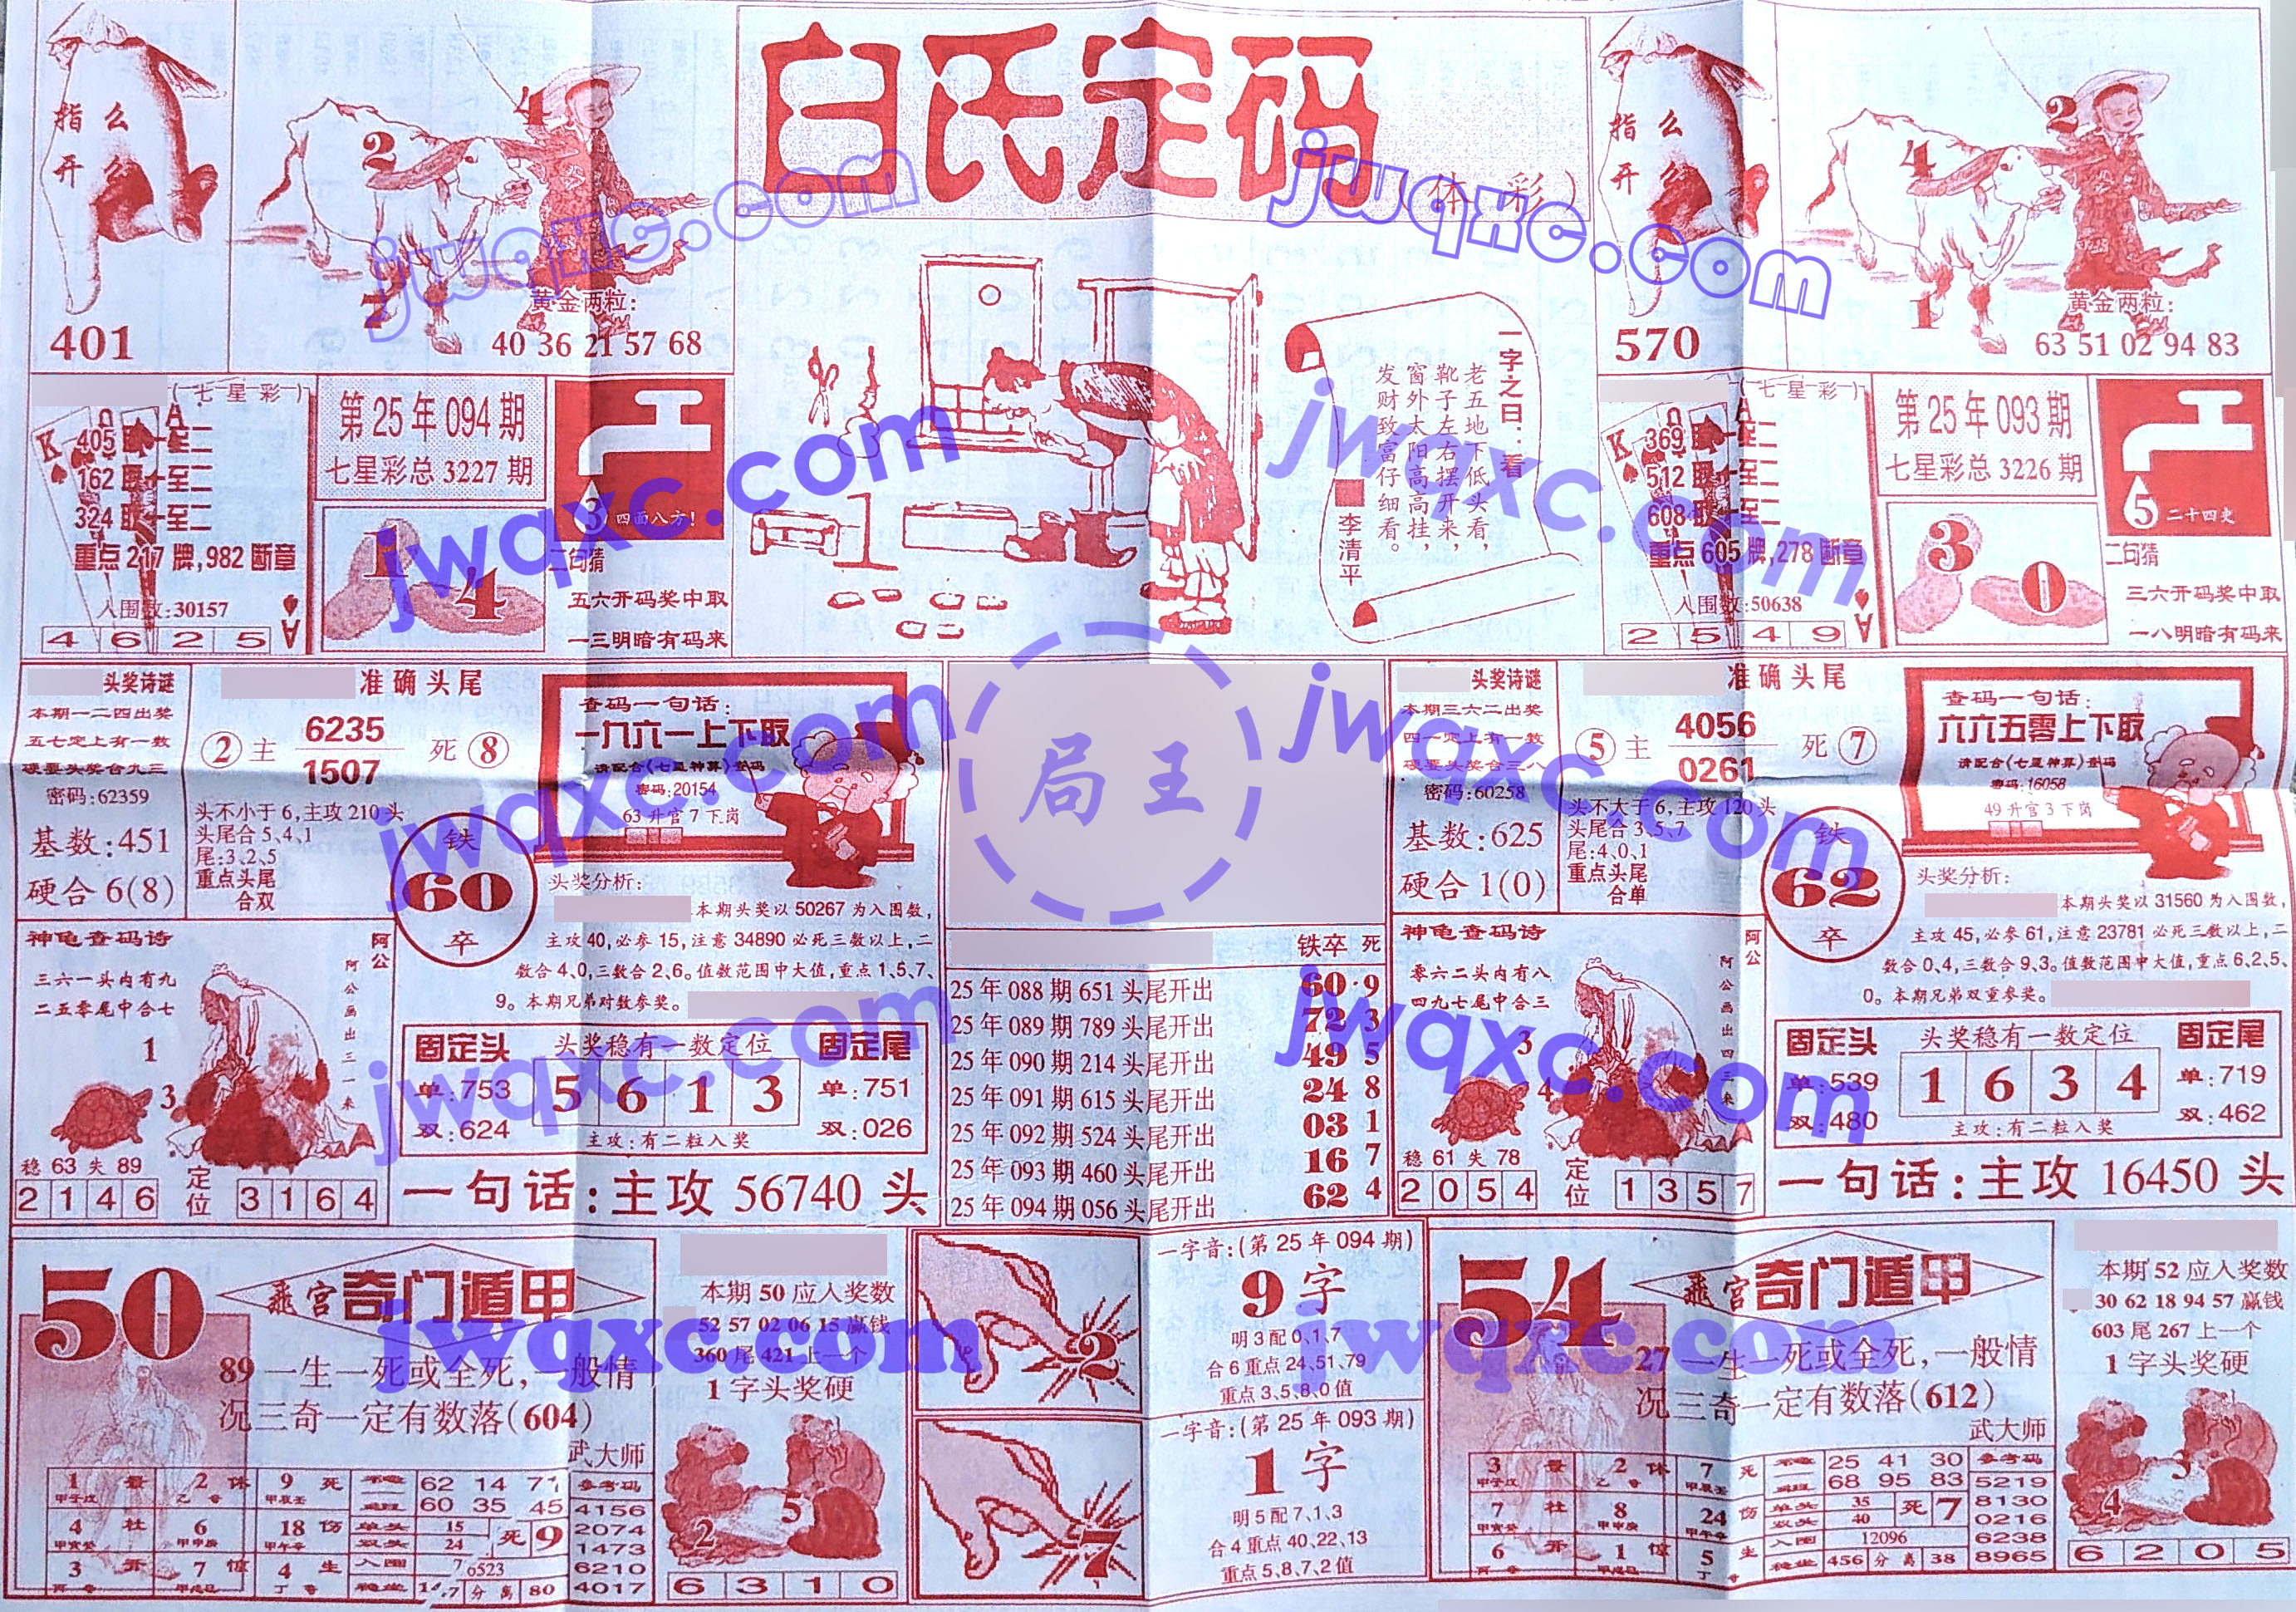 白氏定码
(体彩)
指么
开么
401
2
4
7
黄金两粒:
40 36 21 57 68
一字之曰:看
老五地下低头看,
靴子左右摆开来,
窗外太阳高高挂,
发财致富仔细看。
李清平
指么
开么
570
2
4
1
黄金两粒:
63 51 02 94 83
(七星彩)
K Q A
405 取一至二
162 取一至二
324 取一至二
重点 217 牌,982 断章
入围数:30157
4 6 2 5
A
第25年094期
七星彩总3227期
1
4
3 四面八方!
二句猜
五六开码奖中取
一三明暗有码来
(七星彩)
K Q A
369 取一至二
512 取一至二
608 取一至二
重点 605 牌,278 断章
入围数:50638
2 5 4 9
A
第25年093期
七星彩总3226期
3
0
5 二十四史
二句猜
三六开码奖中取
一八明暗有码来
头奖诗谜
本期一二四出奖
五七定上有一数
硬要头奖合九三
密码:62359
基数:451
硬合 6(8)
准确头尾
②主 6235 死⑧
1507
头不小于6,主攻210头
头尾合5、4、1
尾:3、2、5
重点头尾
合双
铁
60
卒
查码一句话:
一九六一上下取
请配合(七星神算)查码
密码:20154
63 升官 7 下岗
头奖分析:
本期头奖以50267为入围数,
主攻40,必参15,注意34890必死三数以上,二
数合4、0,三数合2、6。值数范围中大值,重点1、5、7、
9。本期兄弟对数参奖。
神龟查码诗
三六一头内有九
二五零尾中合七
阿公
阿公画出三一来
1
3
稳 63 失 89
2 1 4 6
定位
3 1 6 4
固定头
单:753
双:624
头奖稳有一数定位
5 6 1 3
主攻:有二粒入奖
固定尾
单:751
双:026
一句话:主攻 56740 头
局王
铁卒 死
25年088期651头尾开出 60 9
25年089期789头尾开出 72 3
25年090期214头尾开出 49 5
25年091期615头尾开出 24 8
25年092期524头尾开出 03 1
25年093期460头尾开出 16 7
25年094期056头尾开出 62 4
头奖诗谜
本期三六二出奖
四一定上有一数
硬要头奖合三八
密码:60258
基数:625
硬合 1(0)
准确头尾
⑤主 4056 死⑦
0261
头不大于6,主攻120头
头尾合3、5、7
尾:4、0、1
重点头尾
合单
铁
62
卒
查码一句话:
六六五零上下取
请配合(七星神算)查码
密码:16058
49 升官 3 下岗
头奖分析:
本期头奖以31560为入围数,
主攻45,必参61,注意23781必死三数以上,二
数合0、4,三数合9、3。值数范围中大值,重点6、2、5、
0。本期兄弟双重参奖。
神龟查码诗
零六二头内有八
四九七尾中合三
阿公
阿公画出四三来
3
4
稳 61 失 78
2 0 5 4
定位
1 3 5 7
固定头
单:539
双:480
头奖稳有一数定位
1 6 3 4
主攻:有二粒入奖
固定尾
单:719
双:462
一句话:主攻 16450 头
50
飛宫 奇门遁甲
89一生一死或全死,一般情
况三奇一定有数落(604)
武大师
1 景 2 休 9 死
甲子戊 乙奇 甲辰壬
4 杜 6 18 伤
甲寅癸 甲申庚 甲午辛
3 开 7 惊 4 生
丙奇 甲戌己 丁奇
62 14 71
60 35 45
单头 15
双头 24
死 9
入围 76523
分离 80
参考码
4156
2074
1473
6210
4017
本期50应入奖数
52 57 02 06 15 赢钱
360 尾 421 上一个
1字头奖硬
2
5
6 3 1 0
2
7
一字音:(第25年094期)
9字
明3配0、1、7
合6重点24、51、79
重点3、5、8、0值
一字音:(第25年093期)
1字
明5配7、1、3
合4重点40、22、13
重点5、8、7、2值
54
飛宫 奇门遁甲
27一生一死或全死,一般情
况三奇一定有数落(612)
武大师
3 景 2 休 7 死
甲子戊 乙奇 甲辰壬
7 杜 8 24 伤
甲寅癸 甲申庚 甲午辛
6 开 1 惊 5 生
丙奇 甲戌己 丁奇
25 41 30
68 95 83
单头 35
双头 40
死 7
入围 12096
稳坐 456 分离 38
参考码
5219
8130
0216
6238
8965
本期52应入奖数
30 62 18 94 57 赢钱
603 尾 267 上一个
1字头奖硬
3
4
6 2 0 5
jwqxc.com
jwqxc.com
jwqxc.com
jwqxc.com
jwqxc.com
jwqxc.com
jwqxc.com
jwqxc.com
jwqxc.com
jwqxc.com